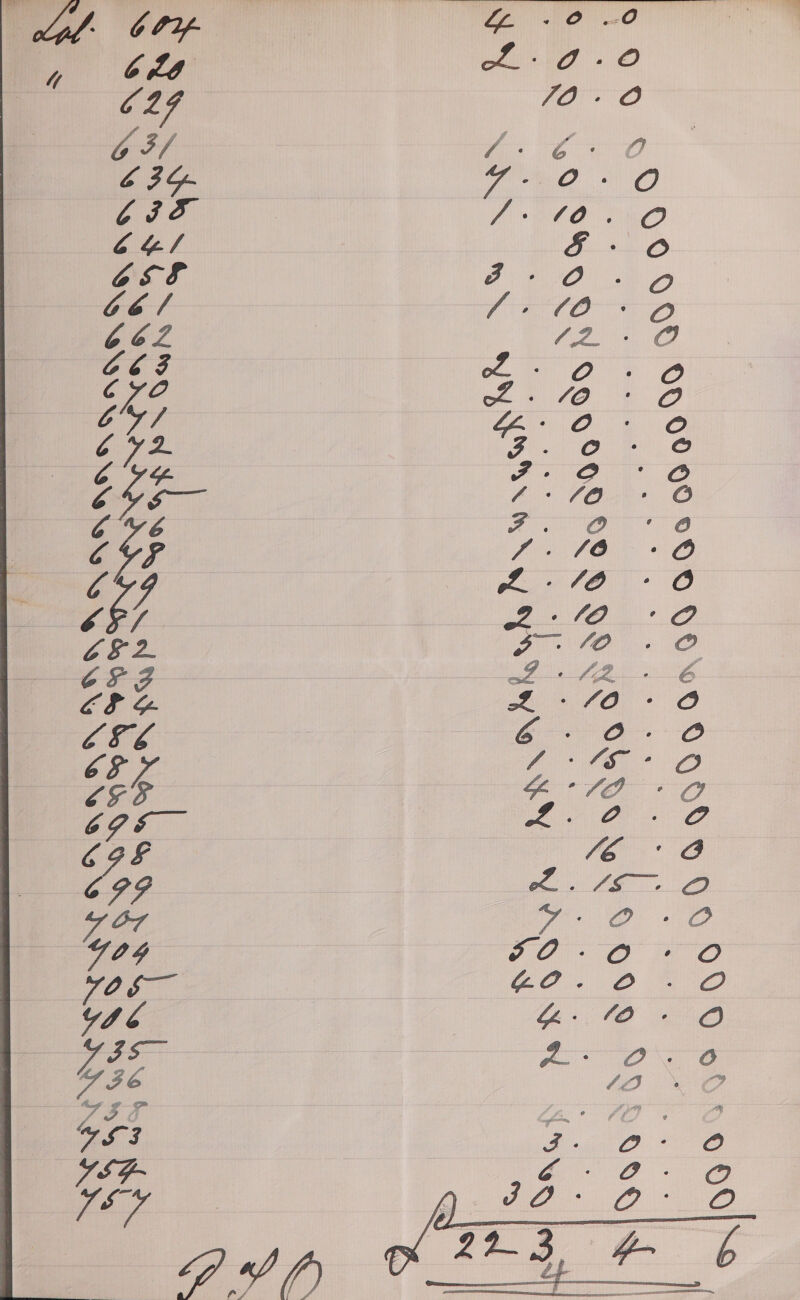 Lot 604 4 . 0 . 0
" 620 2 . 0 . 0
629 10 . 0
631 1 . 6 . 0
634 7 . 0 . 0
638 1 . 10 . 0
641 8 . 0
658 3 . 0 . 0
661 1 . 10 . 0
662 12 . 0
663 2 . 0 . 0
670 2 . 10 . 0
671 4 . 0 . 0
672 3 . 0 . 0
674 3 . 0 . 0
675 1 . 10 . 0
676 3 . 0 . 0
678 1 . 10 . 0
679 2 . 10 . 0
681 2 . 10 . 0
682 5 . 10 . 0
683 2 . 12 . 6
684 2 . 10 . 0
686 6 . 0 . 0
687 1 . 15 . 0
688 4 . 10 . 0
695 2 . 0 . 0
698 16 . 0
699 2 . 15 . 0
701 7 . 0 . 0
704 50 . 0 . 0
705 40 . 0 . 0
706 4 . 10 . 0
735 2 . 0 . 0
736 10 . 0
738 4 . 10 . 0
753 3 . 0 . 0
754 6 . 0 . 0
757 30 . 0 . 0
£ 223 4 6
4
P T O